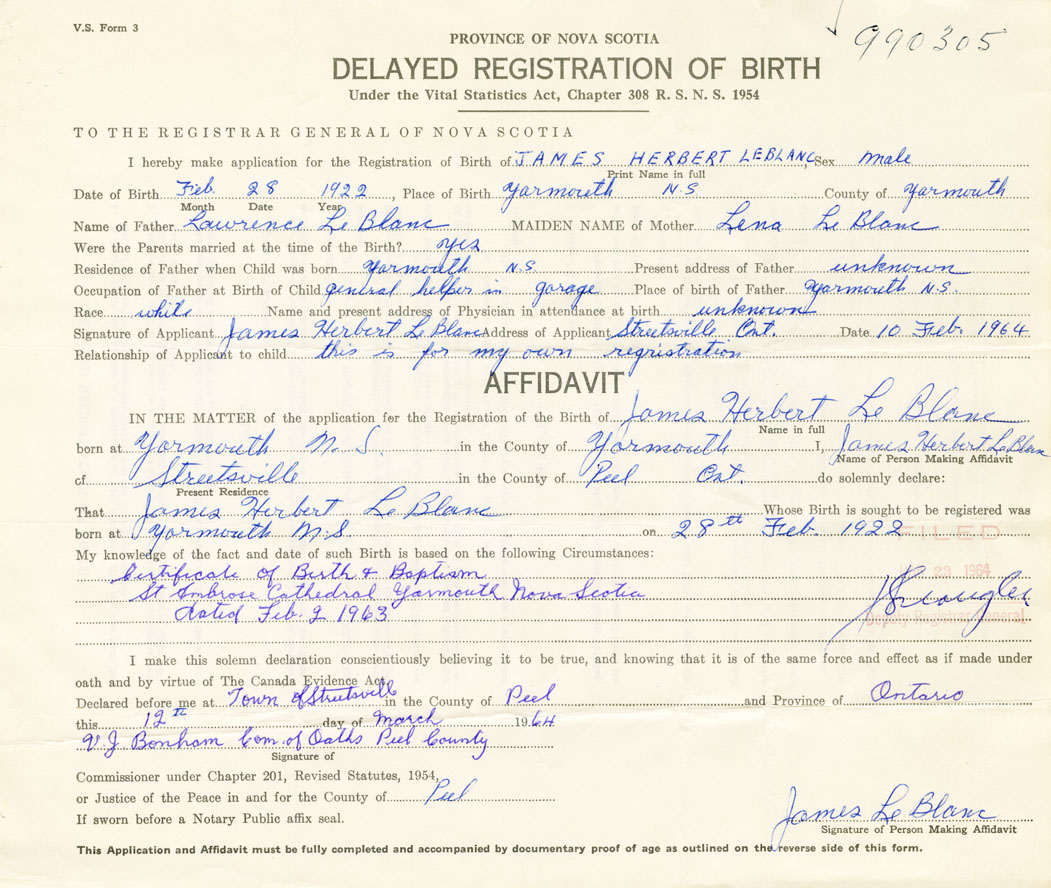 V.S. Form 3
990305
PROVINCE OF NOVA SCOTIA
DELAYED REGISTRATION OF BIRTH
Under the Vital Statistics Act, Chapter 308 R. S. N. S. 1954
TO THE REGISTRAR GENERAL OF NOVA SCOTIA
I hereby make application for the Registration of Birth of JAMES HERBERT LEBLANC Sex male
Print Name in full
Date of Birth Feb. 28 1922, Place of Birth Yarmouth N.S County of Yarmouth
Month Date Year
Name of Father Lawrence Le Blanc MAIDEN NAME of Mother Lena Le Blanc
Were the Parents married at the time of the Birth? yes
Residence of Father when Child was born Yarmouth N.S. Present address of Father unknown
Occupation of Father at Birth of Child general helper in garage Place of birth of Father Yarmouth N.S.
Race white Name and present address of Physician in attendance at birth unknown
Signature of Applicant James Herbert Le Blanc Address of Applicant Streetsville Ont. Date 10 Feb. 1964
Relationship of Applicant to child this is for my own regristration
AFFIDAVIT
IN THE MATTER of the application fer the Registration of the Birth of James Herbert Le Blanc
Name in full
born at Yarmouth N.S. in the County of Yarmouth I, James Herbert Le Blanc
Name of Person Making Affidavit
cf Streetsville in the County of Peel Ont. do solemnly declare:
Present Residence
That James Herbert Le Blanc Whose Birth is sought to be registered was
born at Yarmouth N.S on 28th Feb. 1922
FILED
My knowledge of the fact and date of such Birth is based on the following Circumstances:
Certificate of Birth & Baptism
23 1964
St Ambrose Cathedral Yarmouth Nova Scotia
Dated Feb. 2 1963
Deputy Registrar General
I make this solemn declaration conscientiously believing it to be true, and knowing that it is of the same force and effect as if made under
oath and by virtue of The Canada Evidence Act.
Declared before me at Town of Streetsville in the County of Peel and Province of Ontario
this 12th day of March 1964
V. J. Bonham Com. of Oaths Peel County
Signature of
Commissioner under Chapter 201, Revised Statutes, 1954,
or Justice of the Peace in and for the County of Peel
If sworn before a Notary Public affix seal.
James Le Blanc
Signature of Person Making Affidavit
This Application and Affidavit must be fully completed and accompanied by documentary proof of age as outlined on the reverse side of this form.